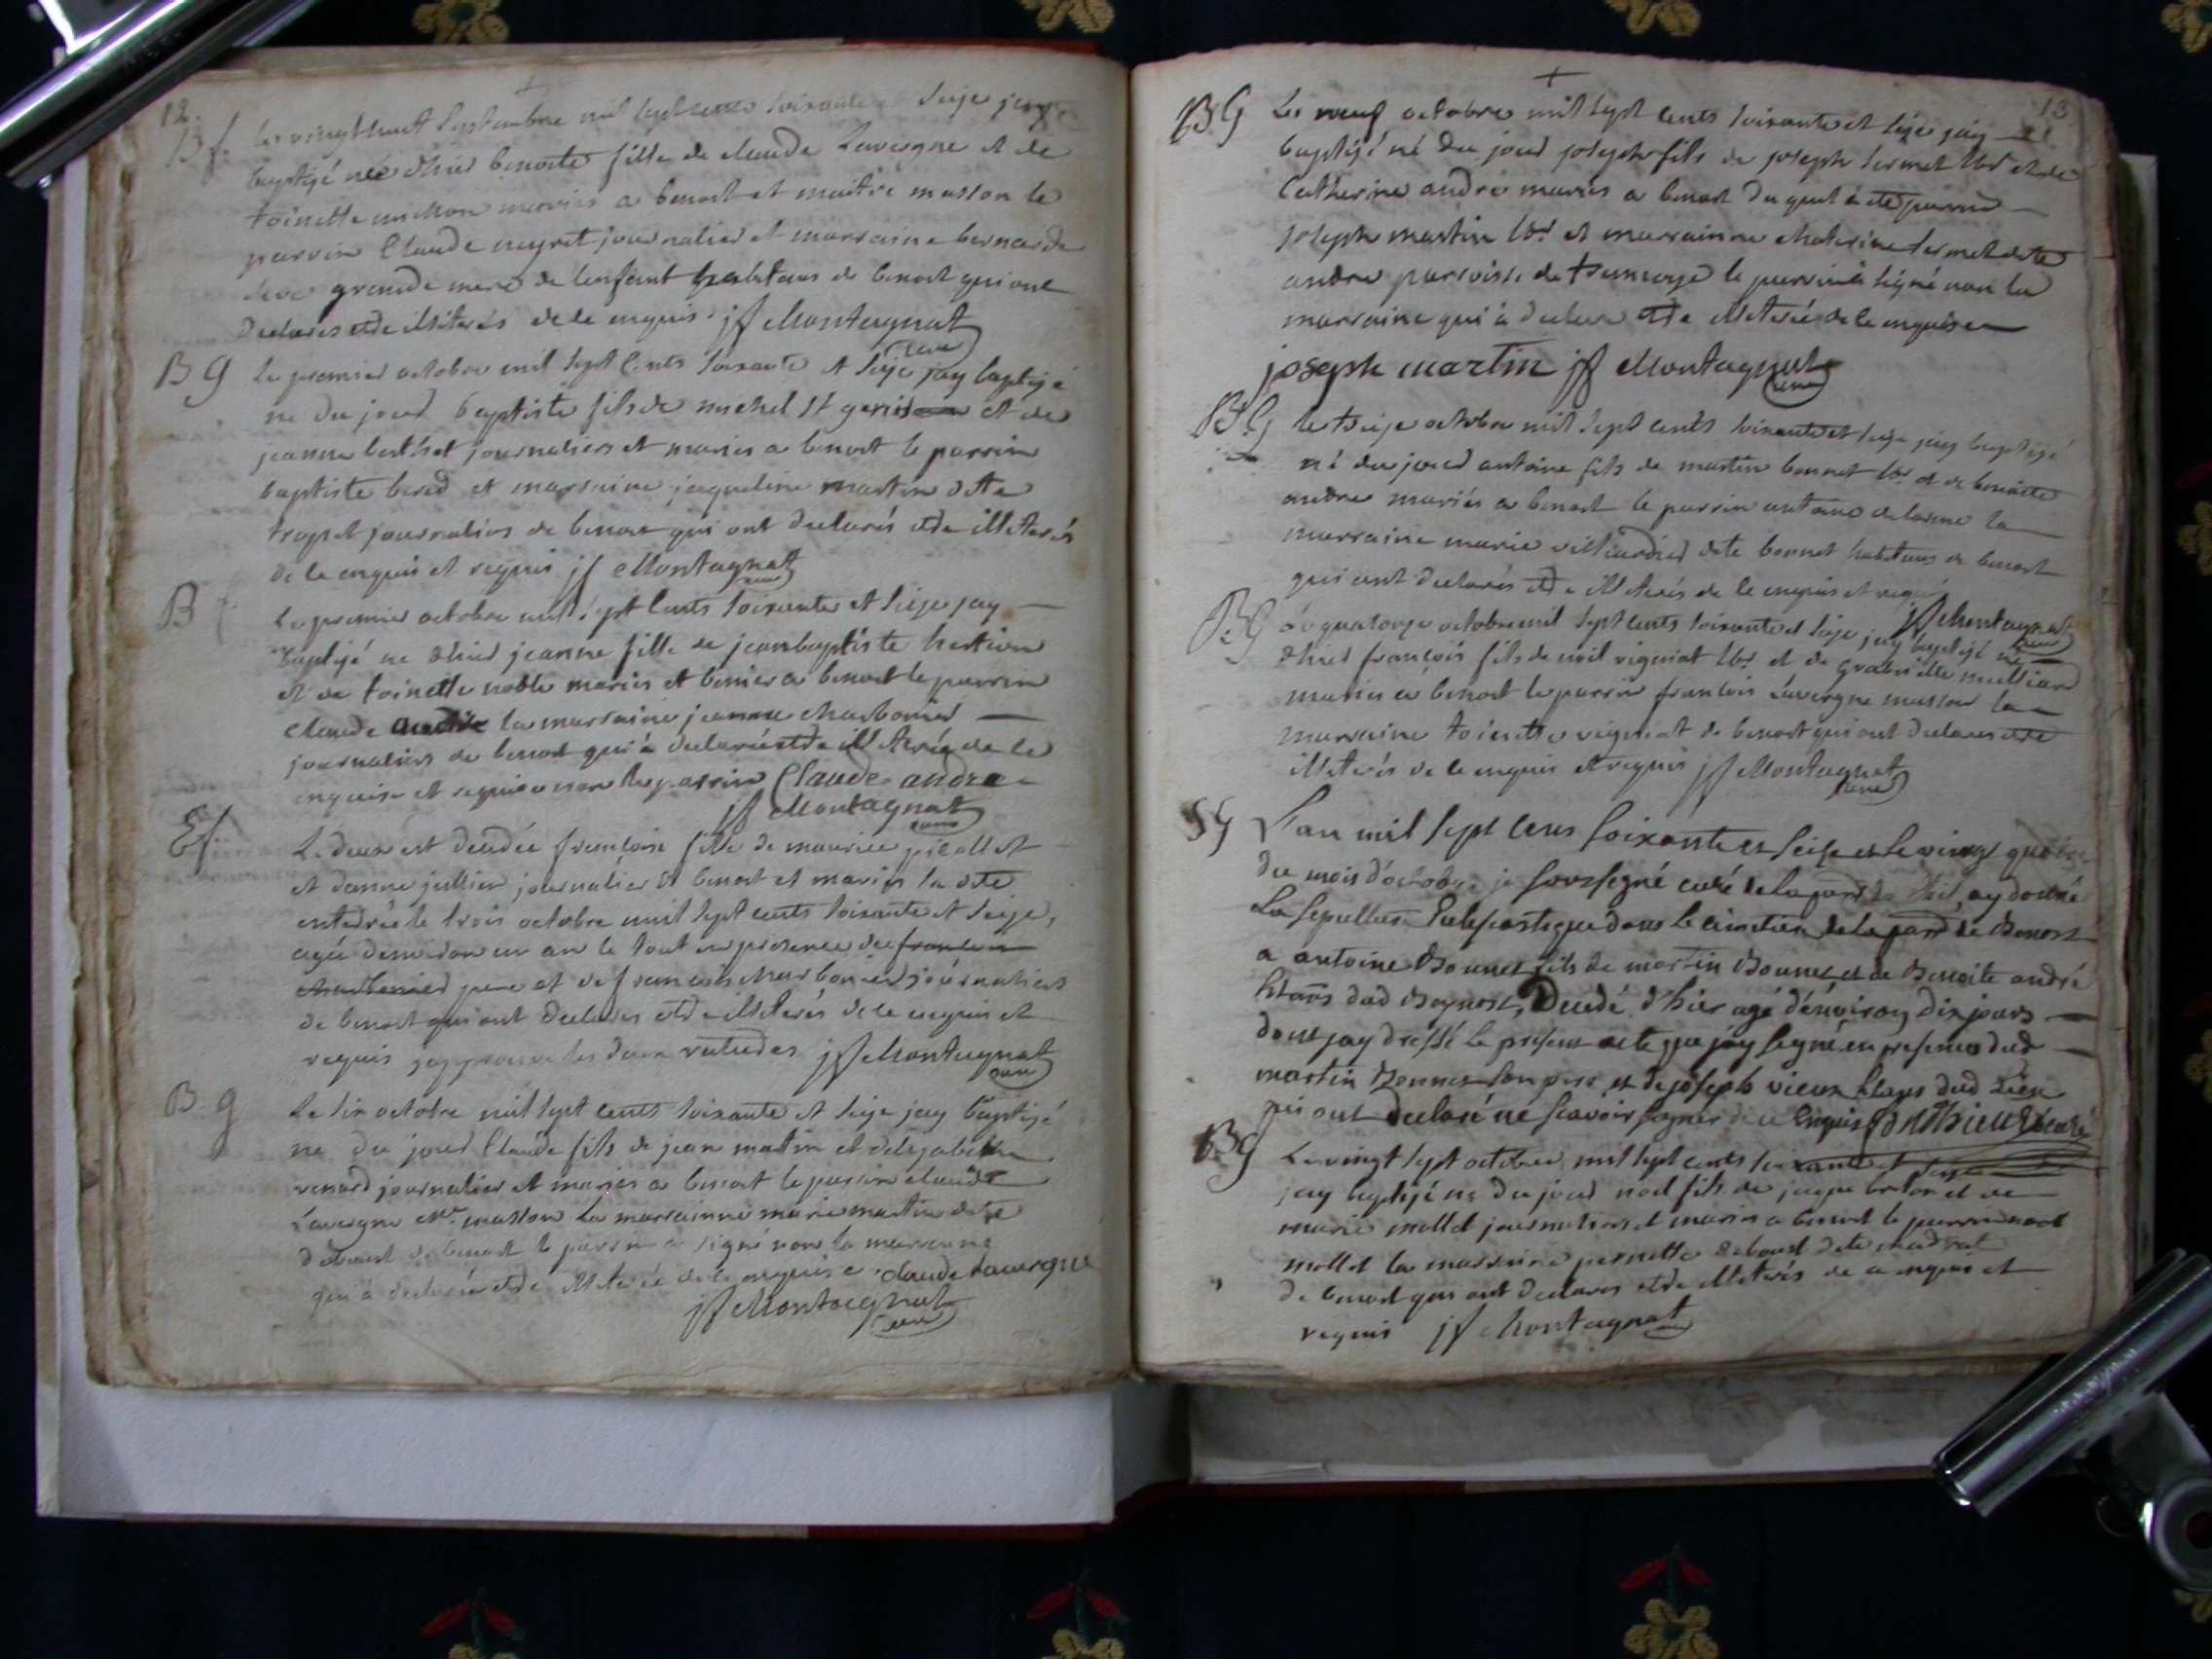 12.
B f. Le vingt huit Septembre mil sept cents soixante et seije jay
baptijé née d'hier benoite fille de claude Lavergne et de
toinette mariés a benost et maitre masson le
parrin Claude neyret journalier et marraine bernarde
grande mere de lenfant habitans de benost qui ont
declarés etre illiterés de ce enquis jf Montagnat
curé
B G Le premier octobre mil sept Cents soixante et seije jay baptijé
ne du jour baptiste fils de michel st et de
jeanne berthet journaliers et mariés a benost le parrin
baptiste et marraine jaqueline martin dite
journaliers de benost qui ont declarés etre illiterés
de ce enquis et requis jf Montagnat
curé
B f Le premier octobre mil sept Cents soixante et seije jay
baptijé ne d'hier jeanne fille de jeanbaptiste
et de toinette noble mariés et a benost le parrin
claude andre la marraine jeanne charbonier
journaliers de benost qui à declarée etre illiterée de ce
enquise et requise non le parrin Claude andre
jf Montagnat
curé
E f. Le deux est decedée francoise fille de maurice
et danne jullien journalier de benost et mariés la dite
enterrée le trois octobre mil sept cents soixante et seije,
agée denviron un an le tout en presence du francois
charbonier pere et de francois charbonier journaliers
de benost qui ont declarés etre illiterés de ce enquis et
requis japprouve les deux ratures jf Montagnat
curé
B. g Le six octobre mil sept cents soixante et seije jay baptijé
ne du jour Claude fils de jean martin et
renard journalier et mariés a benost le parrin claude
Lavergne Me masson la marrainne marie martin dite
de benost le parrin a signé non la marraine
qui à declarée etre illiterée de ce enquise claude Lavergne
jf Montagnat
curé
13
B G Le neuf octobre mil sept cents soixante et seije jay
baptijé né du jour joseph fils de joseph sermet lbr et de
Catherine andré mariés a benost du quel à été parrin
joseph martin lbr et marrainne chaterine sermet dite
andre parroisse de le parrin à signé non la
marraine qui à declaré etre illiterée de ce enquise
joseph martin jf Montagnat
curé
B. G le treije octobre mil sept cents soixante et seije jay baptijé
né du jour antoine fils de martin bonnet lbr et de benoite
andre mariés a benost le parrin antoine delorme la
marraine marie dite bonnet habitans de benost
qui ont declarés etre illiterés de ce enquis et requis
jf Montagnat
curé
B. G Le quatorze octobre mil sept cents soixante et seije jay baptijé né
d'hier françois fils de noil vigniat lbr et de
mariés a benost le parrin francois Lavergne masson la
marraine toinette vigniat de benost qui ont declarés etre
illiterés de ce enquis et requis jf Montagnat
curé
S G L'an mil sept cens soixante et seise et le vingt quatre
du mois d'octobre je soussigné curé de la parr de ay donné
La sepulture Eclesiastique dans le cimetiere de la parr de Benost
a antoine Bonnet fils de martin Bonnet et de Benoite andré
hbtans dud Beynost, Decedé d'hier agé d'environ dix jours
dont jay dressé le present acte que jay signé en presence dud
martin Bonnet son pere et de joseph vieux hbtans dud Lieu
qui ont declaré ne scavoir signer de ce Enquis curé
B. G Le vingt sept octobre mil sept cents soixante et seije
jay baptijé né du jour noel fils de jaque et de
marie mollet journaliers et mariés a benost le parrin noel
mollet la marraine pernette dite
de benost qui ont declarés etre illiterés de ce enquis et
requis jf Montagnat